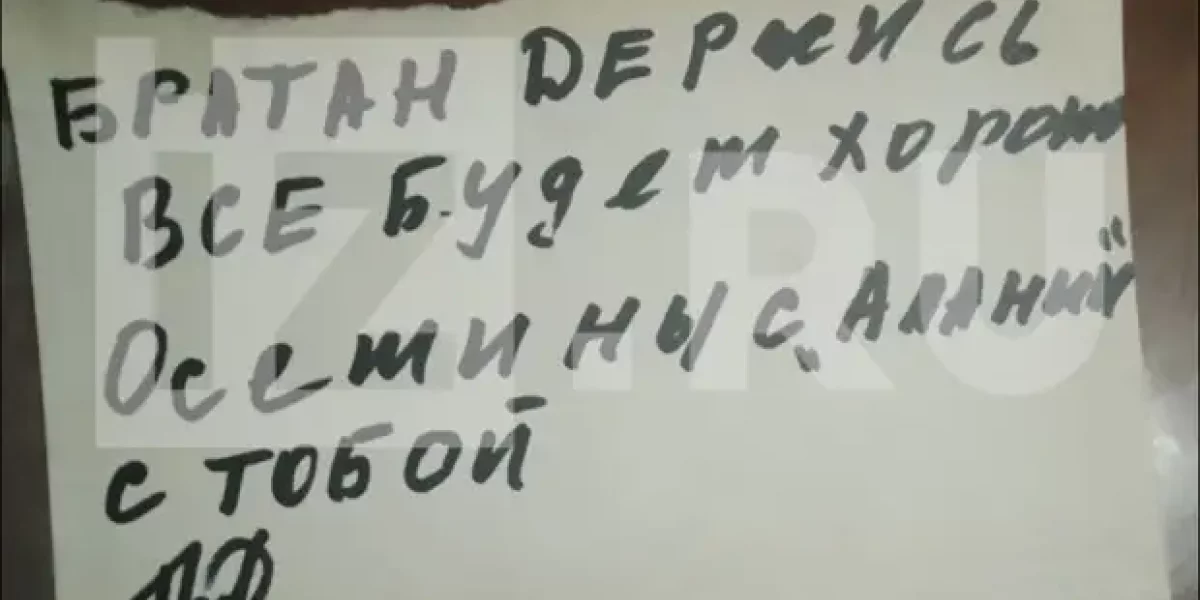 БРАТАН ДЕРЖИСЬ
ВСЕ Будет хорош
Осетины с „Алании“
с тобой
IZ.RU